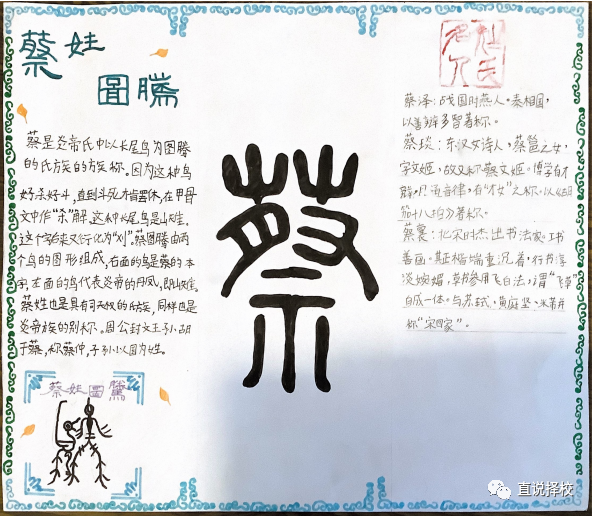 蔡姓
圖騰
蔡是炎帝氏中以长尾鸟为图腾
的氏族的方族称。因为这种鸟
好杀好斗,直到斗死才肯罢休,在甲骨
文中作“杀”解。这种长尾鸟是山雉。
这个字后来又衍化为“刘”。蔡图腾由两
个鸟的图形组成,右面的鸟是蔡的本
字,左面的鸟代表炎帝的丹凤,即山雉。
蔡姓也是具有司天权的氏族,同样也是
炎帝族的别称。周公封文王子小胡
于蔡,称蔡仲,子孙以国为姓。
蔡姓圖騰
蔡
姓氏
名人
蔡泽:战国时燕人。秦相国,
以善辩多智著称。
蔡琰:东汉女诗人,蔡邕之女,
字文姬,故又称蔡文姬。博学有才
辩,通音律,有“才女”之称,以
笳十八拍》著称。
蔡襄:北宋时杰出书法家。工书
善画。其正楷端重沉着,行书淳
淡婉媚,草书参用飞白法,谓“飞草”
自成一体。与苏轼、黄庭坚、米芾并
称“宋四家”。
直说择校